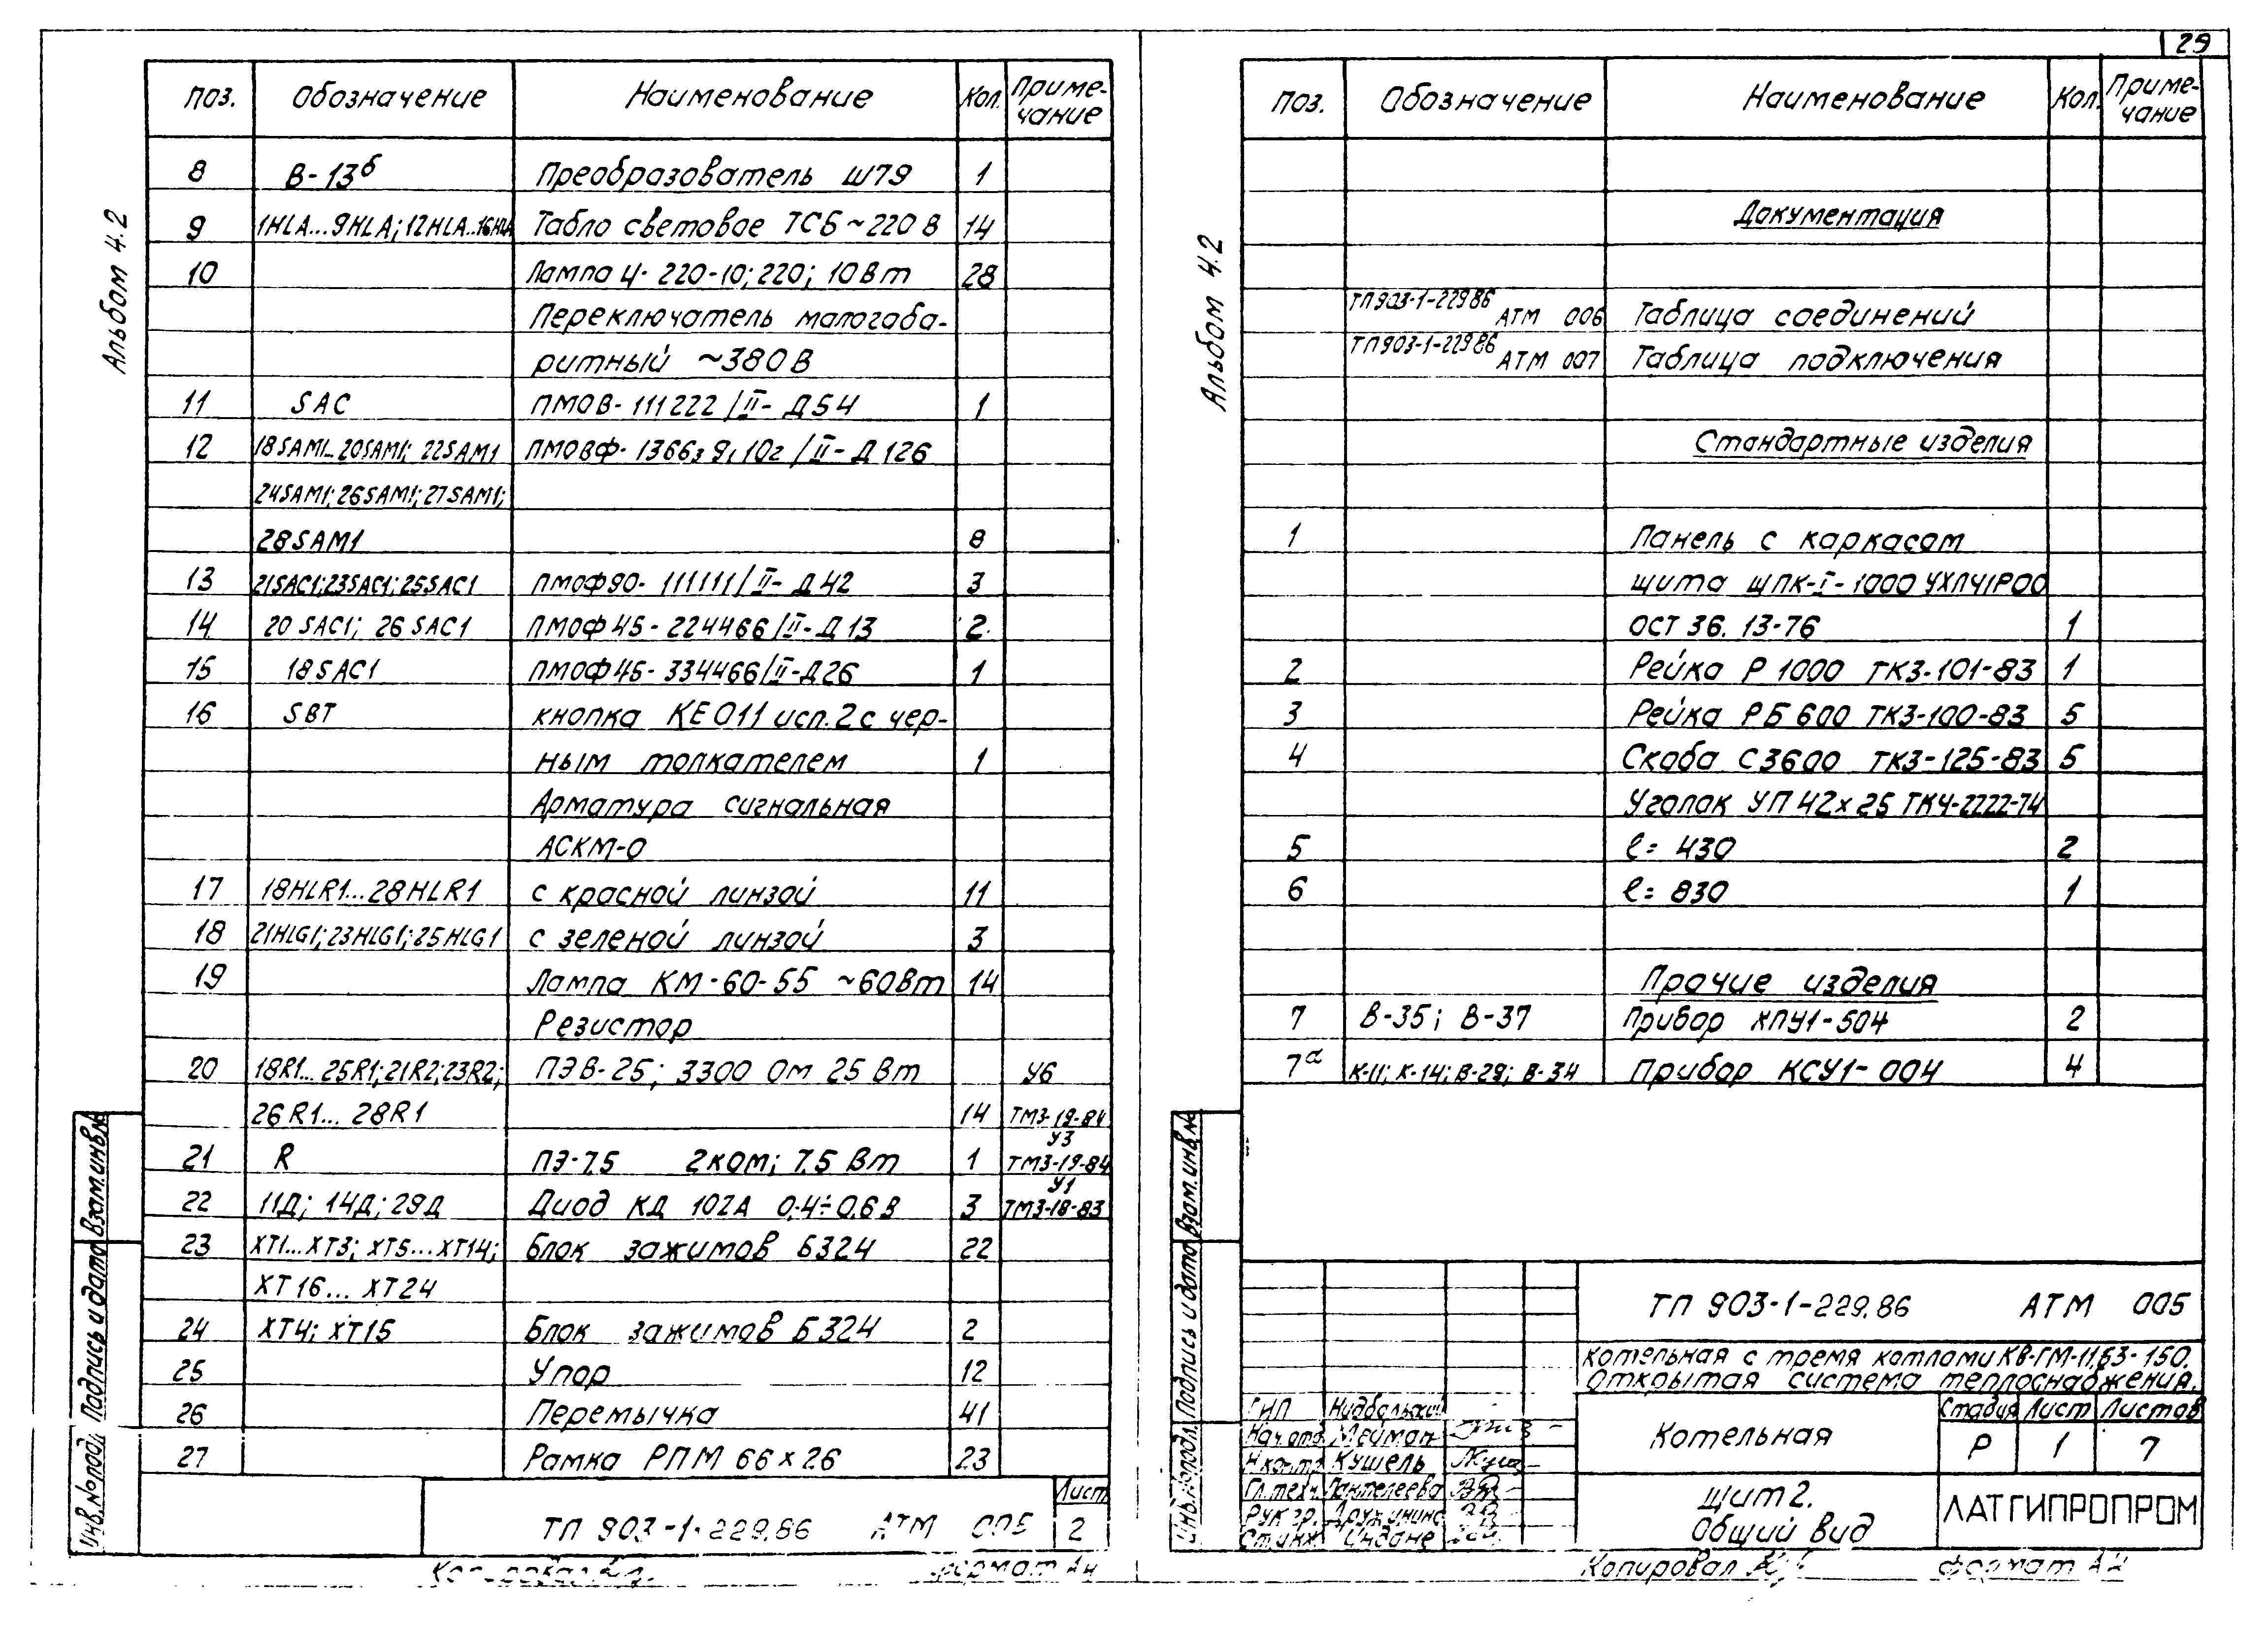 29
Альбом 4.2
поз. Обозначение Наименование Кол. Приме-
чание
8 В-13б Преобразователь Ш79 1
9 1HLA...9HLA; 12HLA...16HLA Табло световое ТСБ ~220 В 14
10 Лампа Ц-220-10; 220; 10 Вт 28
Переключатель малогаба-
ритный ~380 В
11 SAC ПМОВ-111222/II-Д54 1
12 18SAM1...20SAM1; 22SAM1 ПМОВФ-1366з9,10г/II-Д126
24SAM1; 26SAM1; 27SAM1;
28SAM1 8
13 21SAC1; 23SAC1; 25SAC1 ПМОФ90-111111/II-Д42 3
14 20SAC1; 26SAC1 ПМОФ45-224466/II-Д13 2
15 18SAC1 ПМОФ45-334466/II-Д26 1
16 SBT кнопка КЕ011 исп.2 с чер-
ным толкателем 1
Арматура сигнальная
АСКМ-0
17 18HLR1...28HLR1 с красной линзой 11
18 21HLG1; 23HLG1; 25HLG1 с зеленой линзой 3
19 Лампа КМ-60-55 ~60Вт 14
Резистор
20 18R1...25R1; 21R2; 23R2; ПЭВ-25; 3300 Ом 25 Вт У6
26R1...28R1 14 ТМ3-19-84
У3
21 R ПЭ-7,5 2ком; 7,5 Вт 1 ТМ3-19-84
У1
22 11Д; 14Д; 29Д Диод КД 102А 0,4÷0,6 В 3 ТМ3-18-83
23 ХТ1...ХТ3; ХТ5...ХТ14; Блок зажимов Б324 22
ХТ16...ХТ24
24 ХТ4; ХТ15 Блок зажимов Б324 2
25 Упор 12
26 Перемычка 41
27 Рамка РПМ 66х26 23
Взам.инв.№
Подпись и дата
Инв.№подл.
ТП 903-1-229.86 АТМ 005
Лист
2
Формат А4
Альбом 4.2
поз. Обозначение Наименование Кол. Приме-
чание
Документация
ТП903-1-229.86 АТМ 006 Таблица соединений
ТП903-1-229.86 АТМ 007 Таблица подключения
Стандартные изделия
1 Панель с каркасом
щита ЩПК-I-1000 УХЛ41Р00
ОСТ 36.13-76 1
2 Рейка Р 1000 ТК3-101-83 1
3 Рейка РБ 600 ТК3-100-83 5
4 Скоба С3600 ТК3-125-83 5
Уголок УП 42х25 ТК4-2222-74
5 ℓ= 430 2
6 ℓ= 830 1
Прочие изделия
7 В-35; В-37 Прибор КПУ1-504 2
7а К-11; К-14; В-29; В-34 Прибор КСУ1-004 4
Взам.инв.№
Подпись и дата
Инв.№подл.
ТП 903-1-229.86 АТМ 005
Котельная с тремя котлами КВ-ГМ-11,63-150.
Открытая система теплоснабжения.
ГИП Нидбальский
Нач.отд. Мейман
Н.контр. Кушель
Гл.техн. Пантелеева
Рук.гр. Дружинина
Ст.инж. Индане
Котельная
Стадия Лист Листов
Р 1 7
Щит 2.
Общий вид
ЛАТГИПРОПРОМ
Копировал
Формат А4